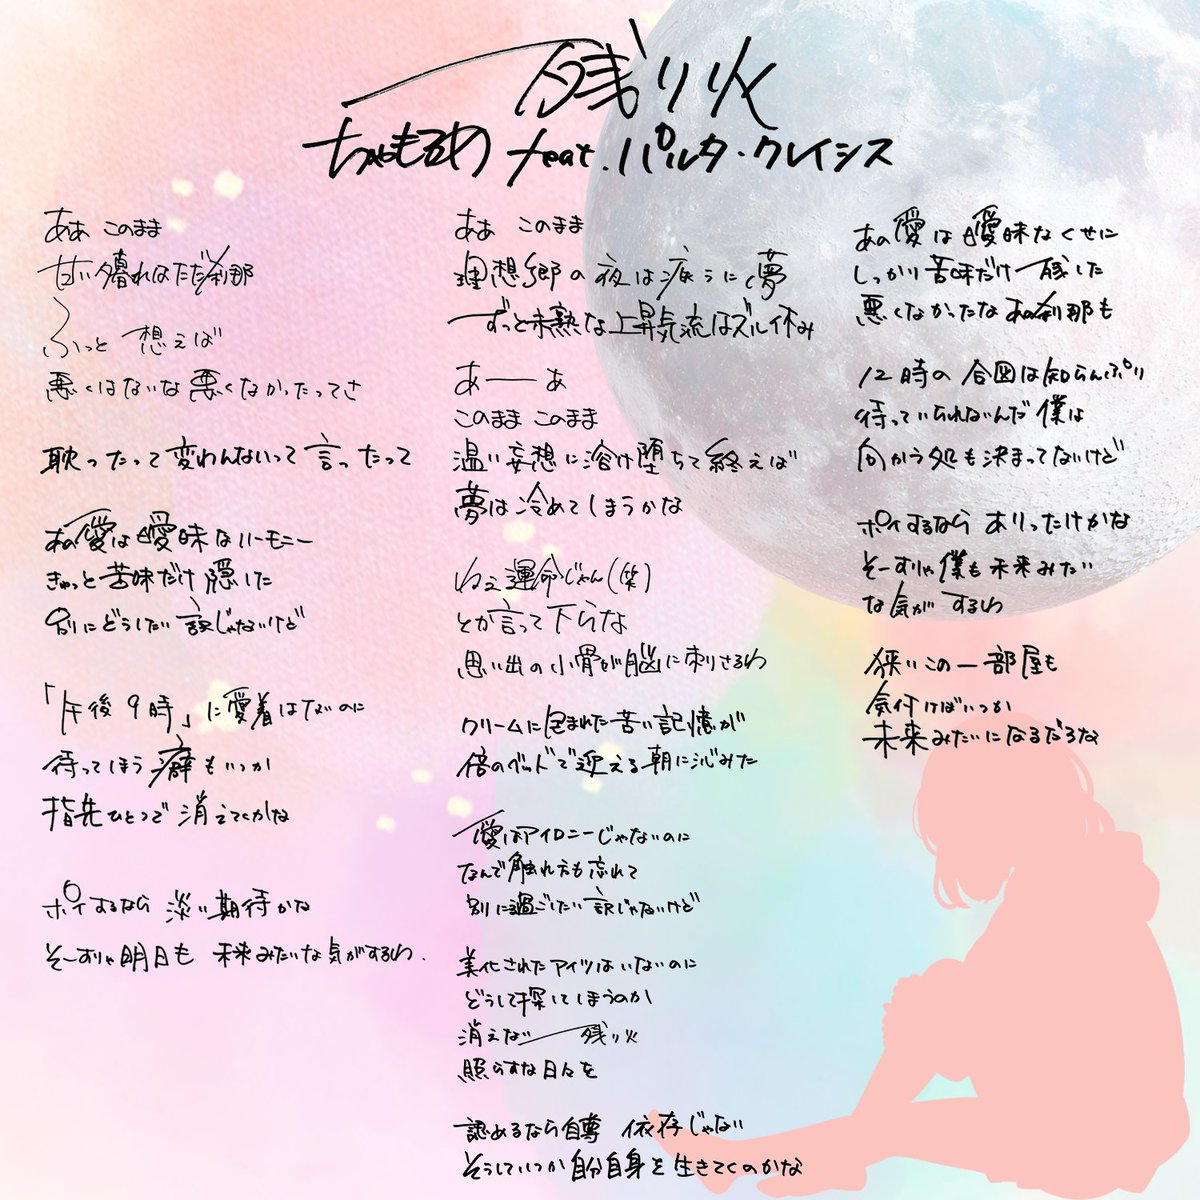 残り火
ちゃもろめ feat.パルタ・クレイシス
ああ このまま
甘い
ただ刹那
ふっと 想えば
悪くはないな 悪くなかったってさ
耽ったって変わんないって言ったって
あの愛は曖昧なハーモニー
きゅっと苦味だけ隠した
別にどうしたい訳じゃないけど
「午後9時」に愛着はないのに
待ってしまう癖もいつか
指先ひとつで消えてくかな
ポイするなら 淡い期待かな
そーすりゃ明日も 未来みたいな気がするわ.
ああ このまま
理想郷の夜は
に夢
ずっと未熟な上昇気流はズル休み
あーーあ
このまま このまま
温い妄想に溶け堕ちて終えば
夢は冷めてしまうかな
ねぇ運命じゃん(笑)
とか言って下らな
思い出の小骨が脳に刺さるわ
クリームに包まれた苦い記憶が
倍のベッドで迎える朝に沁みた
愛はアイロニーじゃないのに
なんで触れ方も忘れて
別に過ごしたい訳じゃないけど
美化されたアイツはいないのに
どうして探してしまうのか
消えない残り火
照らすな日々を
認めるなら自尊 依存じゃない
そうしていつか自分自身を生きてくのかな
あの愛は曖昧なくせに
しっかり苦味だけ残した
悪くなかったな あの刹那も
12時の合図は知らんぷり
待っていられないんだ僕は
向かう処も決まってないけど
ポイするなら ありったけかな
そーすりゃ僕も未来みたい
な気が するわ
狭いこの一部屋も
気付けばいつか
未来みたいになるだろな